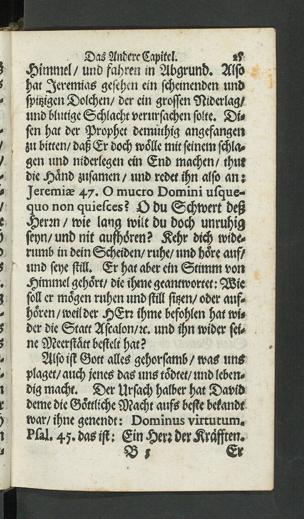 Das Andere Capitel. 25
Himmel/ und fahren in Abgrund. Also
hat Jeremias gesehen ein scheinenden und
spitzigen Dolchen/ der ein grossen Niderlag/
und blutige Schlacht verursachen solte. Di-
sen hat der Prophet demüthig angefangen
zu bitten/ daß Er doch wölle mit seinem schla-
gen und niderlegen ein End machen/ thut
die Händ zusamen/ und redet ihn also an:
Jeremiæ 47. O mucro Domini usque-
quo non quiesces? O du Schwert deß
Herrn/ wie lang wilt du doch unruhig
seyn/ und nit aufhören? Kehr dich wide-
rumb in dein Scheiden/ ruhe/ und höre auf/
und seye still. Er hat aber ein Stimm von
Himmel gehört/ die ihme geantwortet: Wie
soll er mögen ruhen und still sitzen/ oder auf-
hören/ weil der HErr ihme befohlen hat wi-
der die Statt Ascalon/ꝛc. und ihn wider sei-
ne Meerstätt bestelt hat?
Also ist Gott alles gehorsamb/ was uns
plaget/ auch jenes das uns tödtet/ und leben-
dig macht. Der Ursach halber hat David
deme die Göttliche Macht aufs beste bekandt
war/ ihne genendt: Dominus virtutum.
Psal. 45. das ist: Ein Herr der Kräfften.
B 5 Er